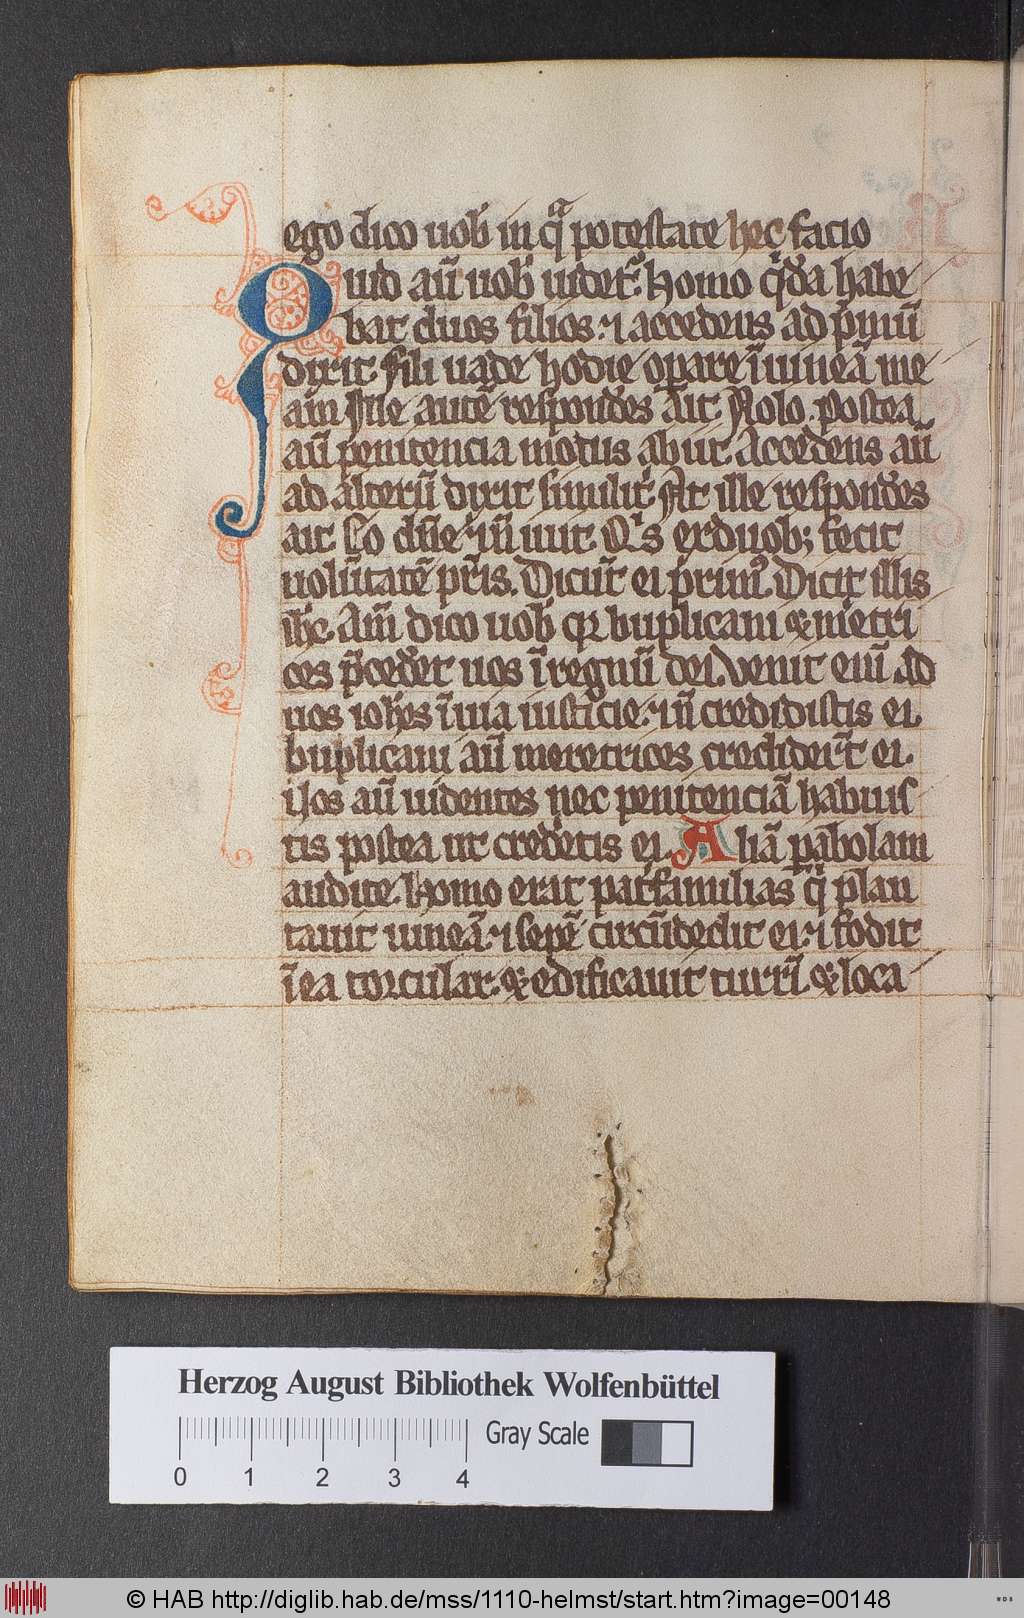 ego dico uob̄ in qͣ potestate hec facio
Quid aū uob̄ uidetͬ. homo qͥda habe
bat duos filios. ⁊ accedens ad p̄mū
dixit. fili uade hodie oꝑare ī uineā me
am Ille autē respondēs ait. Nolo. postea
aū penitencia motus abiit. Accedens aū
ad alterū dixit similiṫ. At ille respondēs
ait. Eo dn̄e. ⁊ nō iuit. Qͥs ex duob; fecit
uolūtatē pr̄is. Dicūt ei primꝰ. Dicit illis
ihc̄. Am̄ dico uob̄ qꝛ puplicani & m̄etri
ces p̄cedēt uos ī regnū dei. Venit eni̅ ad
uos ioh̄es ī uia iusticie. ⁊ n̄ credidistis ei.
puplicani aū meretrices crediderūt ei.
Uos aū uidentes nec penitenciā habuis
tis postea ut crederetis ei. Aliā ꝑabolam
audite. Homo erat pat̄familias qͥ plan
tauit uineā. ⁊ sepē circūdedit ei. ⁊ fodit
ī ea torcular. & edificauit turrī. & loca
Herzog August Bibliothek Wolfenbüttel
Gray Scale
0 1 2 3 4
© HAB http://diglib.hab.de/mss/1110-helmst/start.htm?image=00148